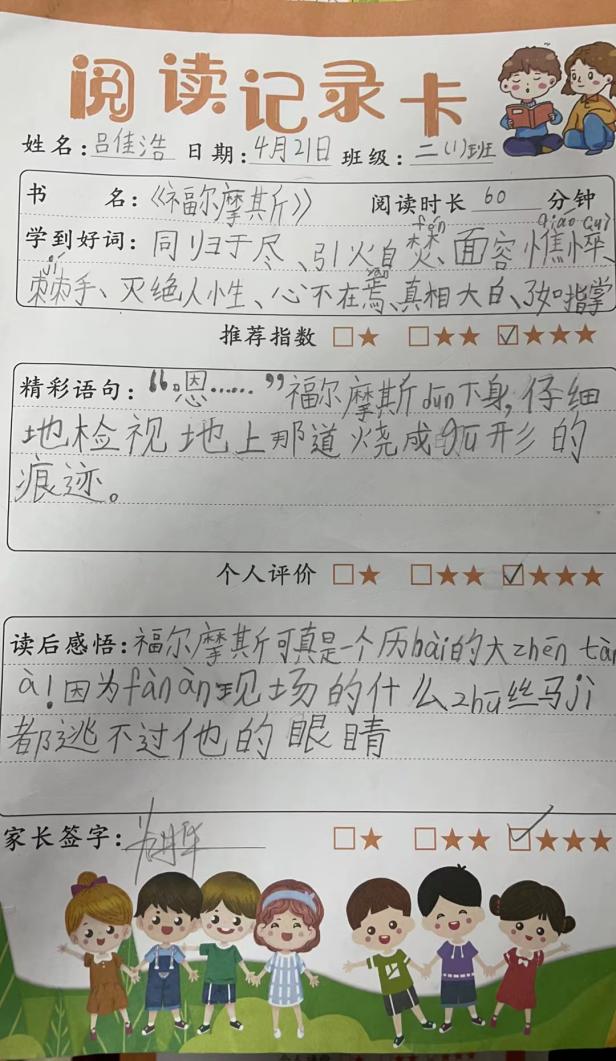 阅读记录卡
姓名:吕佳浩 日期:4月21日 班级:二(1)班
书 名:《福尔摩斯》 阅读时长 60 分钟
fén qiáo cuì
学到好词:同归于尽、引火自焚、面容憔悴、
jí yān
棘手、灭绝人性、心不在焉、真相大白、了如指掌
推荐指数 □★ □★★ ☑★★★
精彩语句:“嗯……”福尔摩斯dūn下身,仔细
地检视地上那道烧成弧形的
痕迹。
个人评价 □★ □★★ ☑★★★
读后感悟:福尔摩斯可真是一个历hài的大zhēn tàn
à!因为fàn àn现场的什么zhū丝马jì
都逃不过他的眼睛
家长签字: □★ □★★ ☑★★★